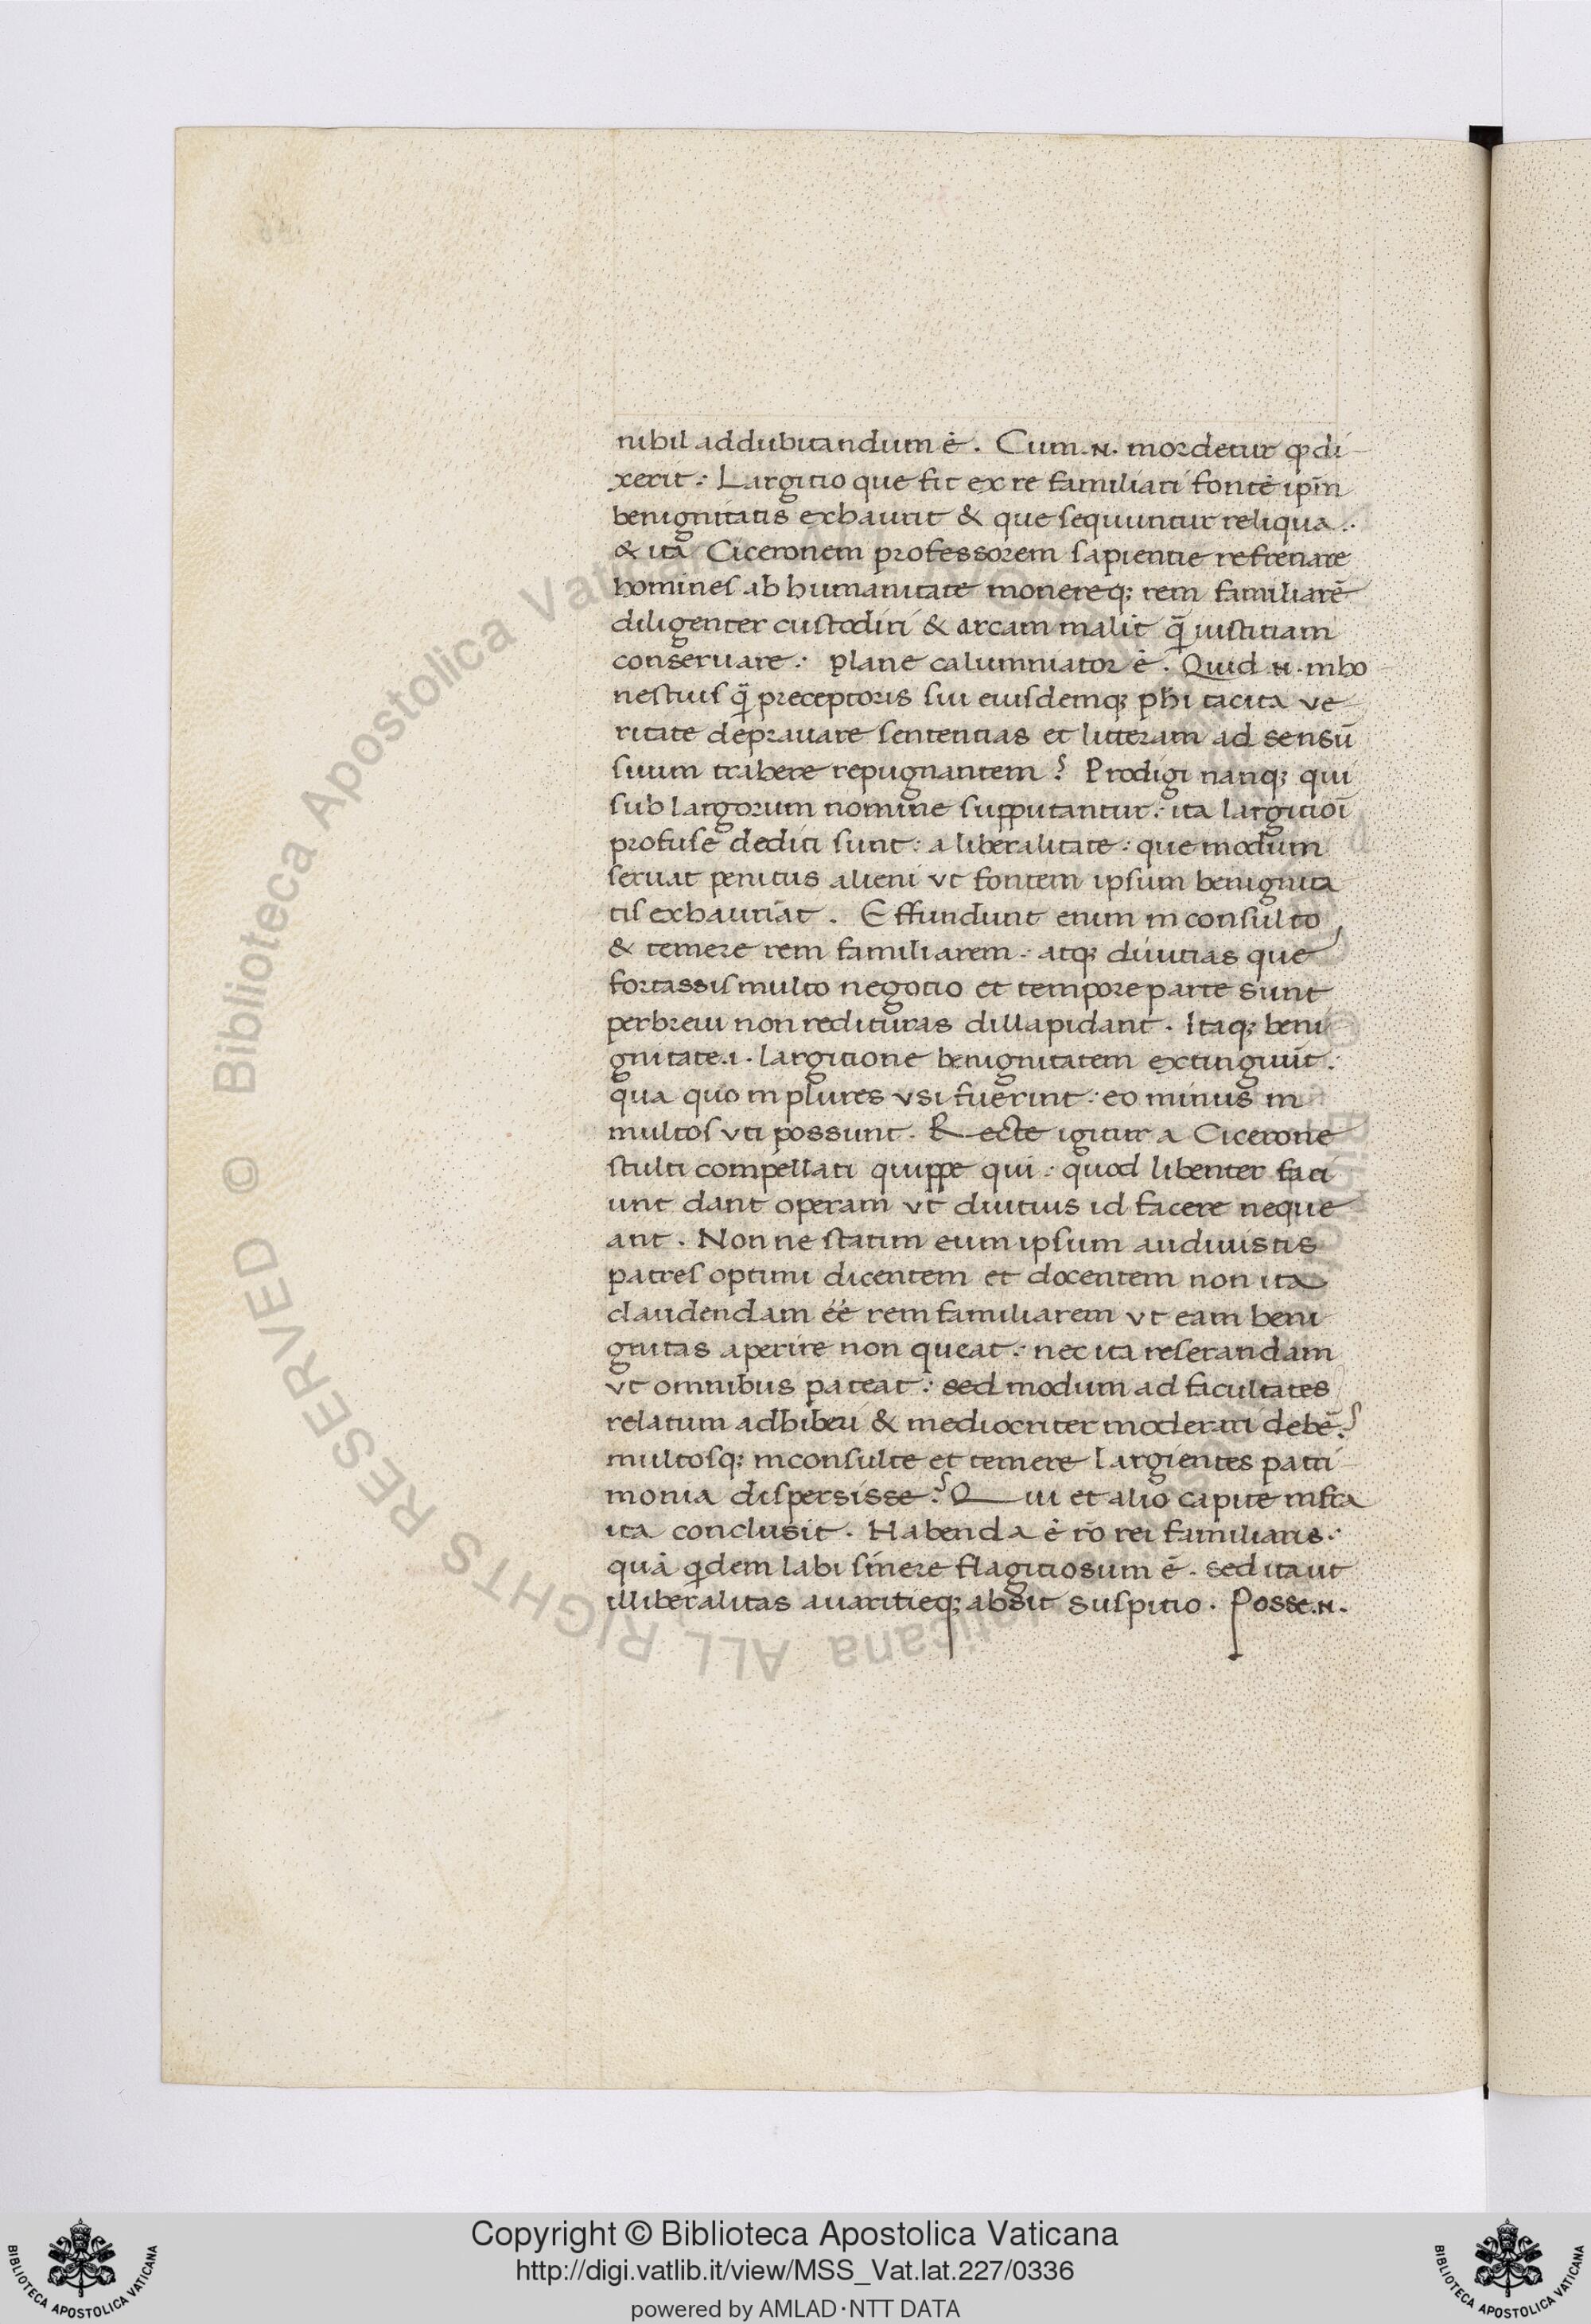 nihil addubitandum ē. Cum .N. mordetur ꝙ di
xerit: Largitio que fit ex re familiari fontē ipm̄
benignitatis exhaurit & que sequuntur reliqua:
& ita Ciceronem professorem sapientie refrenare
homines ab humanitate monereq; rem familiarē
diligenter custodiri & arcam malit q̄ iustitiam
conseruare: plane calumniator ē. Quid .N. inho
nestius q̄ preceptoris sui eiusdemq; phi tacita ve
ritate deprauare sententias et litteram ad sensū
suum trahere repugnantem? Prodigi nanq; qui
sub largorum nomine supputantur: ita largitioī
profuse dediti sunt: a liberalitate: que modum
seruat penitus alieni vt fontem ipsum benignita
tis exhauriāt. Effundunt enim inconsulto
& temere rem familiarem: atq; diuitias que
fortassis multo negotio et tempore parte sunt
perbreui non redituras dillapidant. Itaq; beni
gnitate .i. largitione benignitatem extinguūt:
qua quo in plures vsi fuerint: eo minus in
multos vti possunt. Recte igitur a Cicerone
stulti compellati quippe qui: quod libenter faci
unt dant operam vt diutius id facere neque
ant. Nonne statim eum ipsum audiuistis
patres optimi dicentem et docentem non ita
claudendam éé rem familiarem vt eam beni
gnitas aperire non queat: nec ita reserandam
vt omnibus pateat: sed modum ad facultates
relatum adhiberi & mediocriter moderari debē?
multosq; inconsulte et temere largientes patri
monia dispersisse? Qui et alio capite infra
ita conclusit. Habenda ē rō rei familiaris:
quā qdem labi sinere flagitiosum ē. sed ita ut
illiberalitas avaritieq; absit suspitio. Posse .N.
© Biblioteca Apostolica Vaticana ALL RIGHTS RESERVED
Copyright © Biblioteca Apostolica Vaticana
http://digi.vatlib.it/view/MSS_Vat.lat.227/0336
powered by AMLAD·NTT DATA
BIBLIOTECA APOSTOLICA VATICANA
BIBLIOTECA APOSTOLICA VATICANA